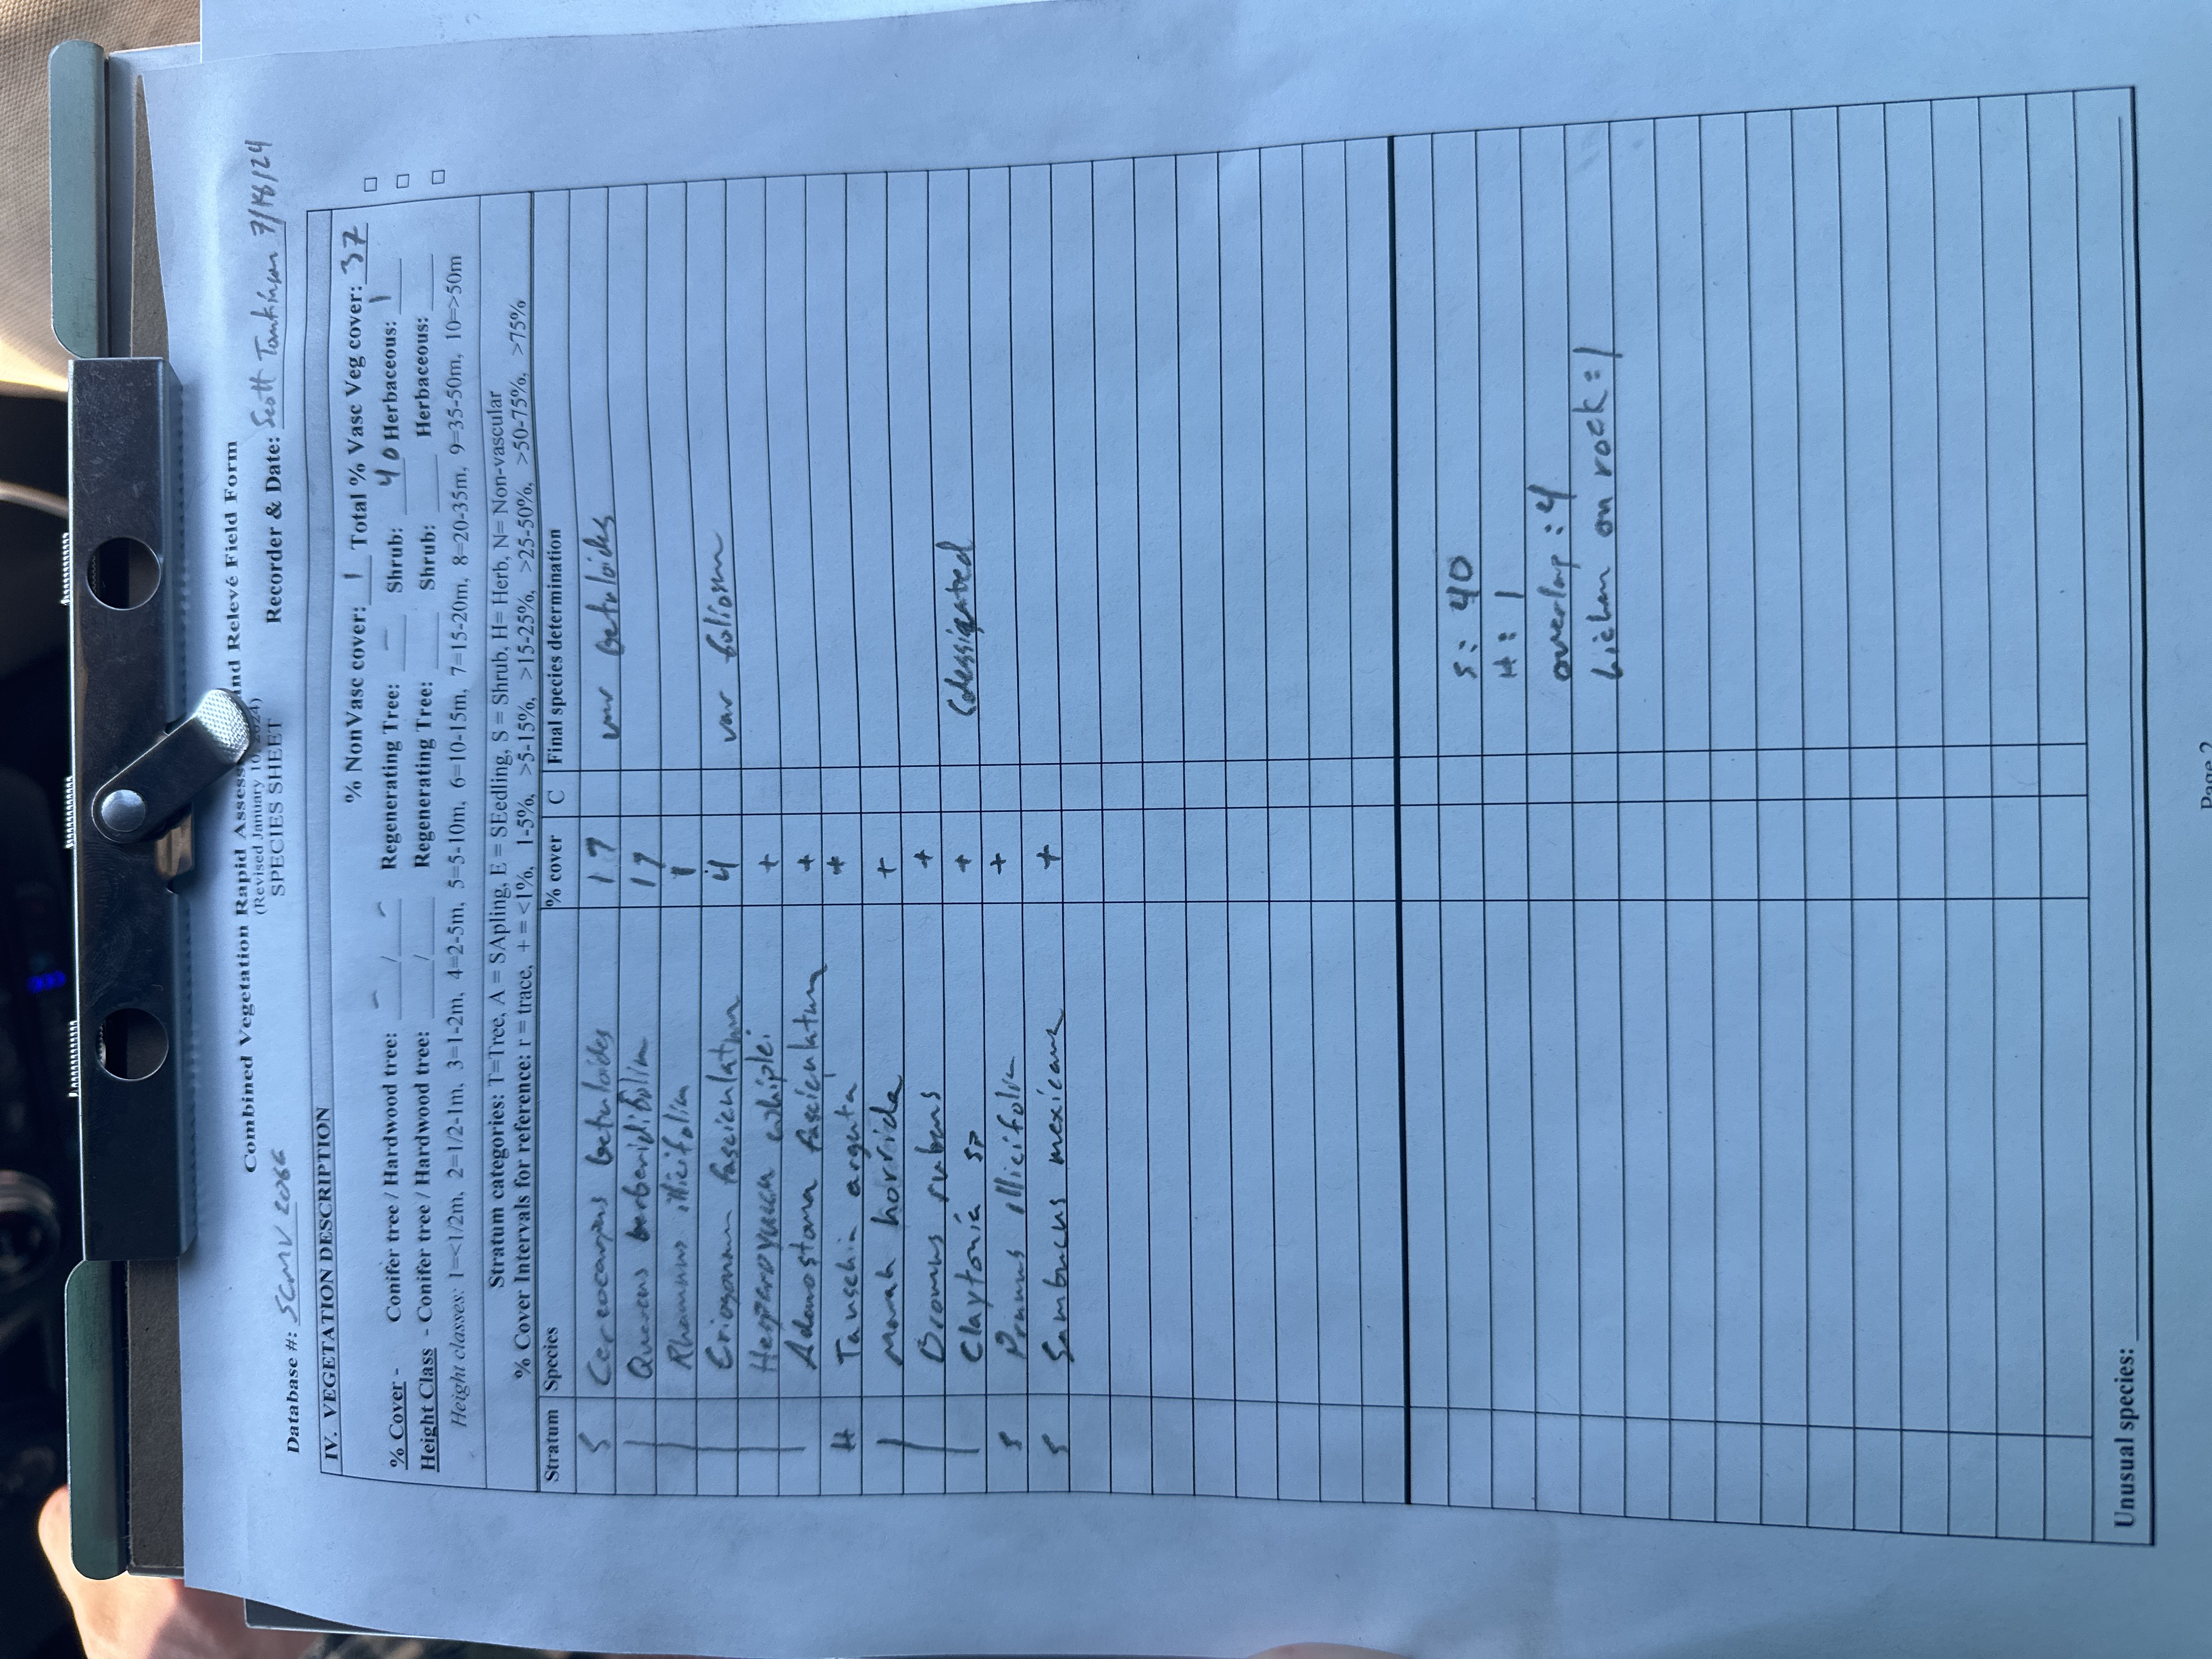 Combined Vegetation Rapid Assess and Relevé Field Form
(Revised January 10, 2024)
SPECIES SHEET
Database #: SCMV 2066 Recorder & Date: Scott Tomkinson
IV. VEGETATION DESCRIPTION
% NonVasc cover: 1 Total % Vasc Veg cover: 37
% Cover - Conifer tree / Hardwood tree: - / - Regenerating Tree: - Shrub: 40 Herbaceous: 1
Height Class - Conifer tree / Hardwood tree: / Regenerating Tree: Shrub: Herbaceous:
Height classes: 1=<1/2m, 2=1/2-1m, 3=1-2m, 4=2-5m, 5=5-10m, 6=10-15m, 7=15-20m, 8=20-35m, 9=35-50m, 10=>50m
Stratum categories: T=Tree, A = SApling, E = SEedling, S = Shrub, H= Herb, N= Non-vascular
% Cover Intervals for reference: r = trace, + = <1%, 1-5%, >5-15%, >15-25%, >25-50%, >50-75%, >75%
Stratum Species % cover C Final species determination
S Cercocarpus betuloides 17 var betuloides
Quercus berberidifolia 17
Rhamnus illicifolia 1
Eriogonum fasciculatum 4 var foliosum
Hesperoyucca whiplei +
Adenostoma fasciculatum +
H Tauschia arguta +
Marah horrida +
Bromus rubens +
Claytonia sp + (dessicated
S Prunus illicifolia +
S Sambucus mexicana +
S: 40
H: 1
overlap: 4
Lichen on rock = 1
Unusual species:
Page 2